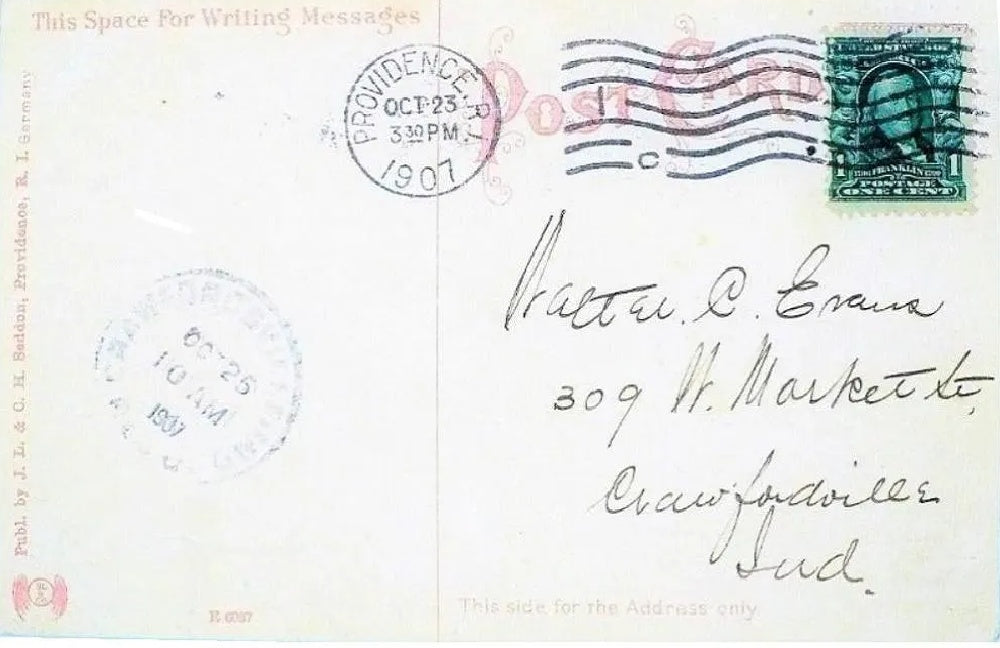 This Space For Writing Messages
POST CARD
PROVIDENCE, R.I.
OCT 23
3 30 PM
1907
1
C
FRANKLIN
POSTAGE
1 ONE CENT 1
Publ. by J. L. & C. H. Seddon, Providence, R. I. Germany
OCT 25
10 AM
1907
Walter. C. Evans
309 W. Market St,
Crawfordville
Ind.
This side for the Address only